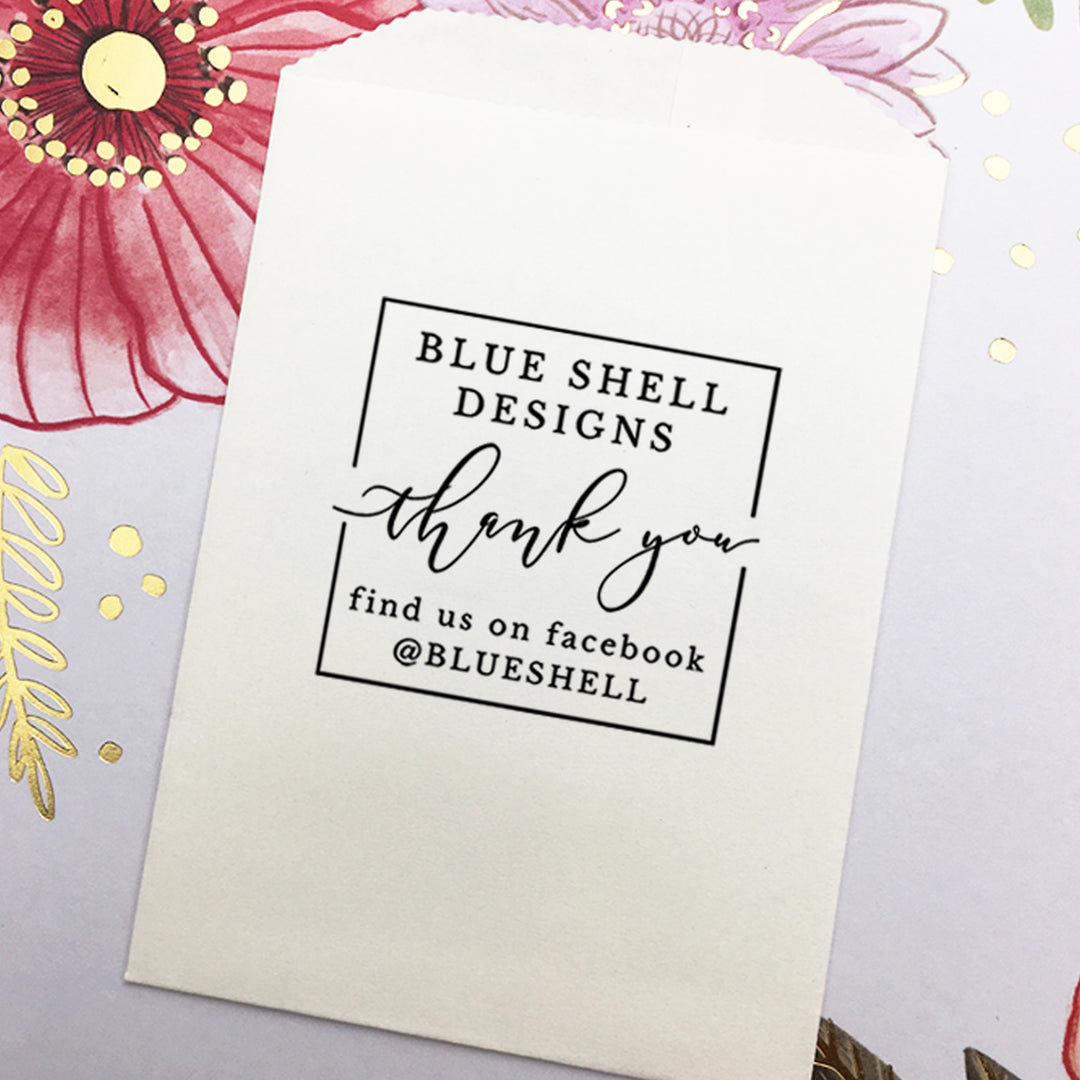 BLUE SHELL
DESIGNS
thank you
find us on facebook
@BLUESHELL